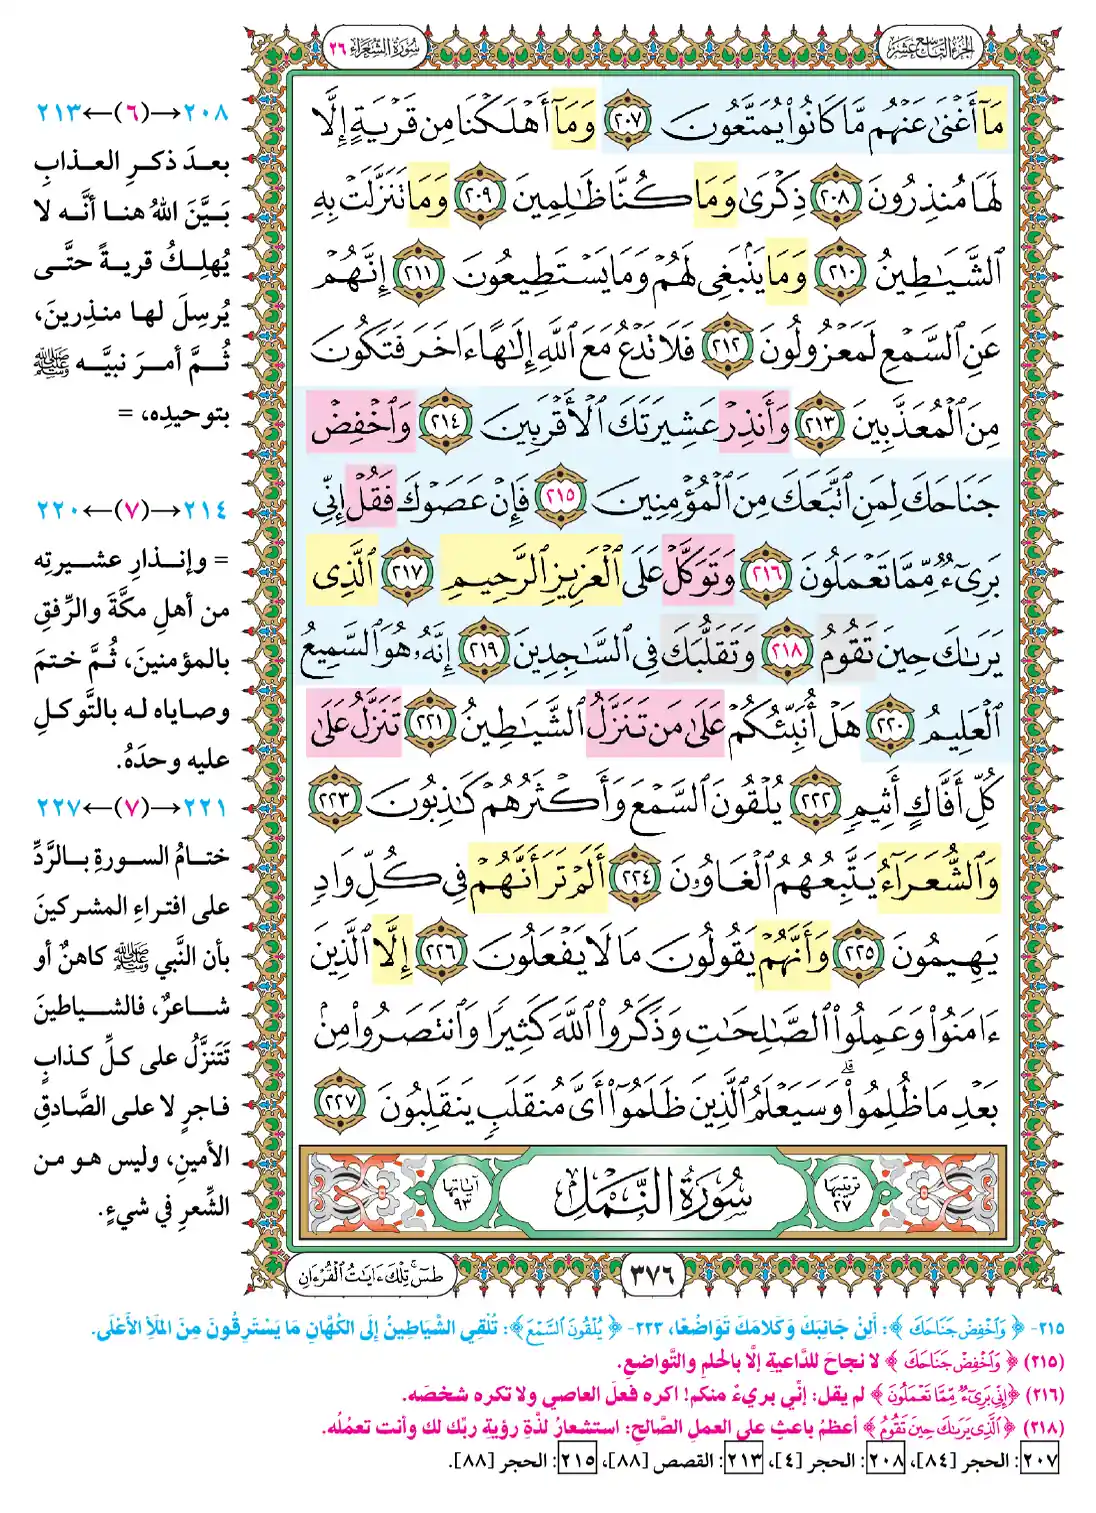 الجزء التاسع عشر
سورة الشعراء ٢٦
مَآ أَغْنَىٰ عَنْهُم مَّا كَانُوا۟ يُمَتَّعُونَ ٢٠٧ وَمَآ أَهْلَكْنَا مِن قَرْيَةٍ إِلَّا
لَهَا مُنذِرُونَ ٢٠٨ ذِكْرَىٰ وَمَا كُنَّا ظَٰلِمِينَ ٢٠٩ وَمَا تَنَزَّلَتْ بِهِ
ٱلشَّيَٰطِينُ ٢١٠ وَمَا يَنۢبَغِى لَهُمْ وَمَا يَسْتَطِيعُونَ ٢١١ إِنَّهُمْ
عَنِ ٱلسَّمْعِ لَمَعْزُولُونَ ٢١٢ فَلَا تَدْعُ مَعَ ٱللَّهِ إِلَٰهًا ءَاخَرَ فَتَكُونَ
مِنَ ٱلْمُعَذَّبِينَ ٢١٣ وَأَنذِرْ عَشِيرَتَكَ ٱلْأَقْرَبِينَ ٢١٤ وَٱخْفِضْ
جَنَاحَكَ لِمَنِ ٱتَّبَعَكَ مِنَ ٱلْمُؤْمِنِينَ ٢١٥ فَإِنْ عَصَوْكَ فَقُلْ إِنِّى
بَرِىٓءٌ مِّمَّا تَعْمَلُونَ ٢١٦ وَتَوَكَّلْ عَلَى ٱلْعَزِيزِ ٱلرَّحِيمِ ٢١٧ ٱلَّذِى
يَرَىٰكَ حِينَ تَقُومُ ٢١٨ وَتَقَلُّبَكَ فِى ٱلسَّٰجِدِينَ ٢١٩ إِنَّهُۥ هُوَ ٱلسَّمِيعُ
ٱلْعَلِيمُ ٢٢٠ هَلْ أُنَبِّئُكُمْ عَلَىٰ مَن تَنَزَّلُ ٱلشَّيَٰطِينُ ٢٢١ تَنَزَّلُ عَلَىٰ
كُلِّ أَفَّاكٍ أَثِيمٍ ٢٢٢ يُلْقُونَ ٱلسَّمْعَ وَأَكْثَرُهُمْ كَٰذِبُونَ ٢٢٣
وَٱلشُّعَرَآءُ يَتَّبِعُهُمُ ٱلْغَاوُۥنَ ٢٢٤ أَلَمْ تَرَ أَنَّهُمْ فِى كُلِّ وَادٍ
يَهِيمُونَ ٢٢٥ وَأَنَّهُمْ يَقُولُونَ مَا لَا يَفْعَلُونَ ٢٢٦ إِلَّا ٱلَّذِينَ
ءَامَنُوا۟ وَعَمِلُوا۟ ٱلصَّٰلِحَٰتِ وَذَكَرُوا۟ ٱللَّهَ كَثِيرًا وَٱنتَصَرُوا۟ مِنۢ
بَعْدِ مَا ظُلِمُوا۟ ۗ وَسَيَعْلَمُ ٱلَّذِينَ ظَلَمُوٓا۟ أَىَّ مُنقَلَبٍ يَنقَلِبُونَ ٢٢٧
ترتيبها ٢٧
سُورَةُ النَّمْلِ
آياتها ٩٣
٣٧٦
طسٓ ۚ تِلْكَ ءَايَٰتُ ٱلْقُرْءَانِ
٢٠٨→(٦)←٢١٣
بعدَ ذكرِ العذابِ
بَيَّنَ اللهُ هنا أنَّه لا
يُهلِكُ قريةً حتَّى
يُرسِلَ لها منذِرينَ،
ثُمَّ أمرَ نبيَّه ﷺ
بتوحيدِه، =
٢١٤→(٧)←٢٢٠
= وإنذارِ عشيرتِه
من أهلِ مكَّةَ والرِّفقِ
بالمؤمنينَ، ثُمَّ ختمَ
وصاياه له بالتَّوكلِ
عليه وحدَهُ.
٢٢١→(٧)←٢٢٧
ختامُ السورةِ بالرَّدِّ
على افتراءِ المشركينَ
بأن النَّبي ﷺ كاهنٌ أو
شاعرٌ، فالشياطينَ
تَتَنزَّلُ على كلِّ كذابٍ
فاجرٍ لا على الصَّادقِ
الأمينِ، وليس هو من
الشِّعرِ في شيءٍ.
٢١٥- ﴿وَٱخْفِضْ جَنَاحَكَ﴾: أَلِنْ جَانِبَكَ وَكَلامَكَ تَوَاضُعًا، ٢٢٣- ﴿يُلْقُونَ ٱلسَّمْعَ﴾: تُلْقِي الشَّيَاطِينُ إِلَى الكُهَّانِ مَا يَسْتَرِقُونَ مِنَ المَلَأِ الأَعْلَى.
(٢١٥) ﴿وَٱخْفِضْ جَنَاحَكَ﴾ لا نجاحَ للدَّاعيةِ إلَّا بالحلمِ والتَّواضعِ.
(٢١٦) ﴿إِنِّى بَرِىٓءٌ مِّمَّا تَعْمَلُونَ﴾ لم يقل: إنِّي بريءٌ منكم! اكره فعلَ العاصي ولا تكره شخصَه.
(٢١٨) ﴿ٱلَّذِى يَرَىٰكَ حِينَ تَقُومُ﴾ أعظمُ باعثٍ على العملِ الصَّالحِ: استشعارُ لذَّةِ رؤيةِ ربِّك لك وأنت تعمُلُه.
٢٠٧: الحجر [٨٤]، ٢٠٨: الحجر [٤]، ٢١٣: القصص [٨٨]، ٢١٥: الحجر [٨٨].